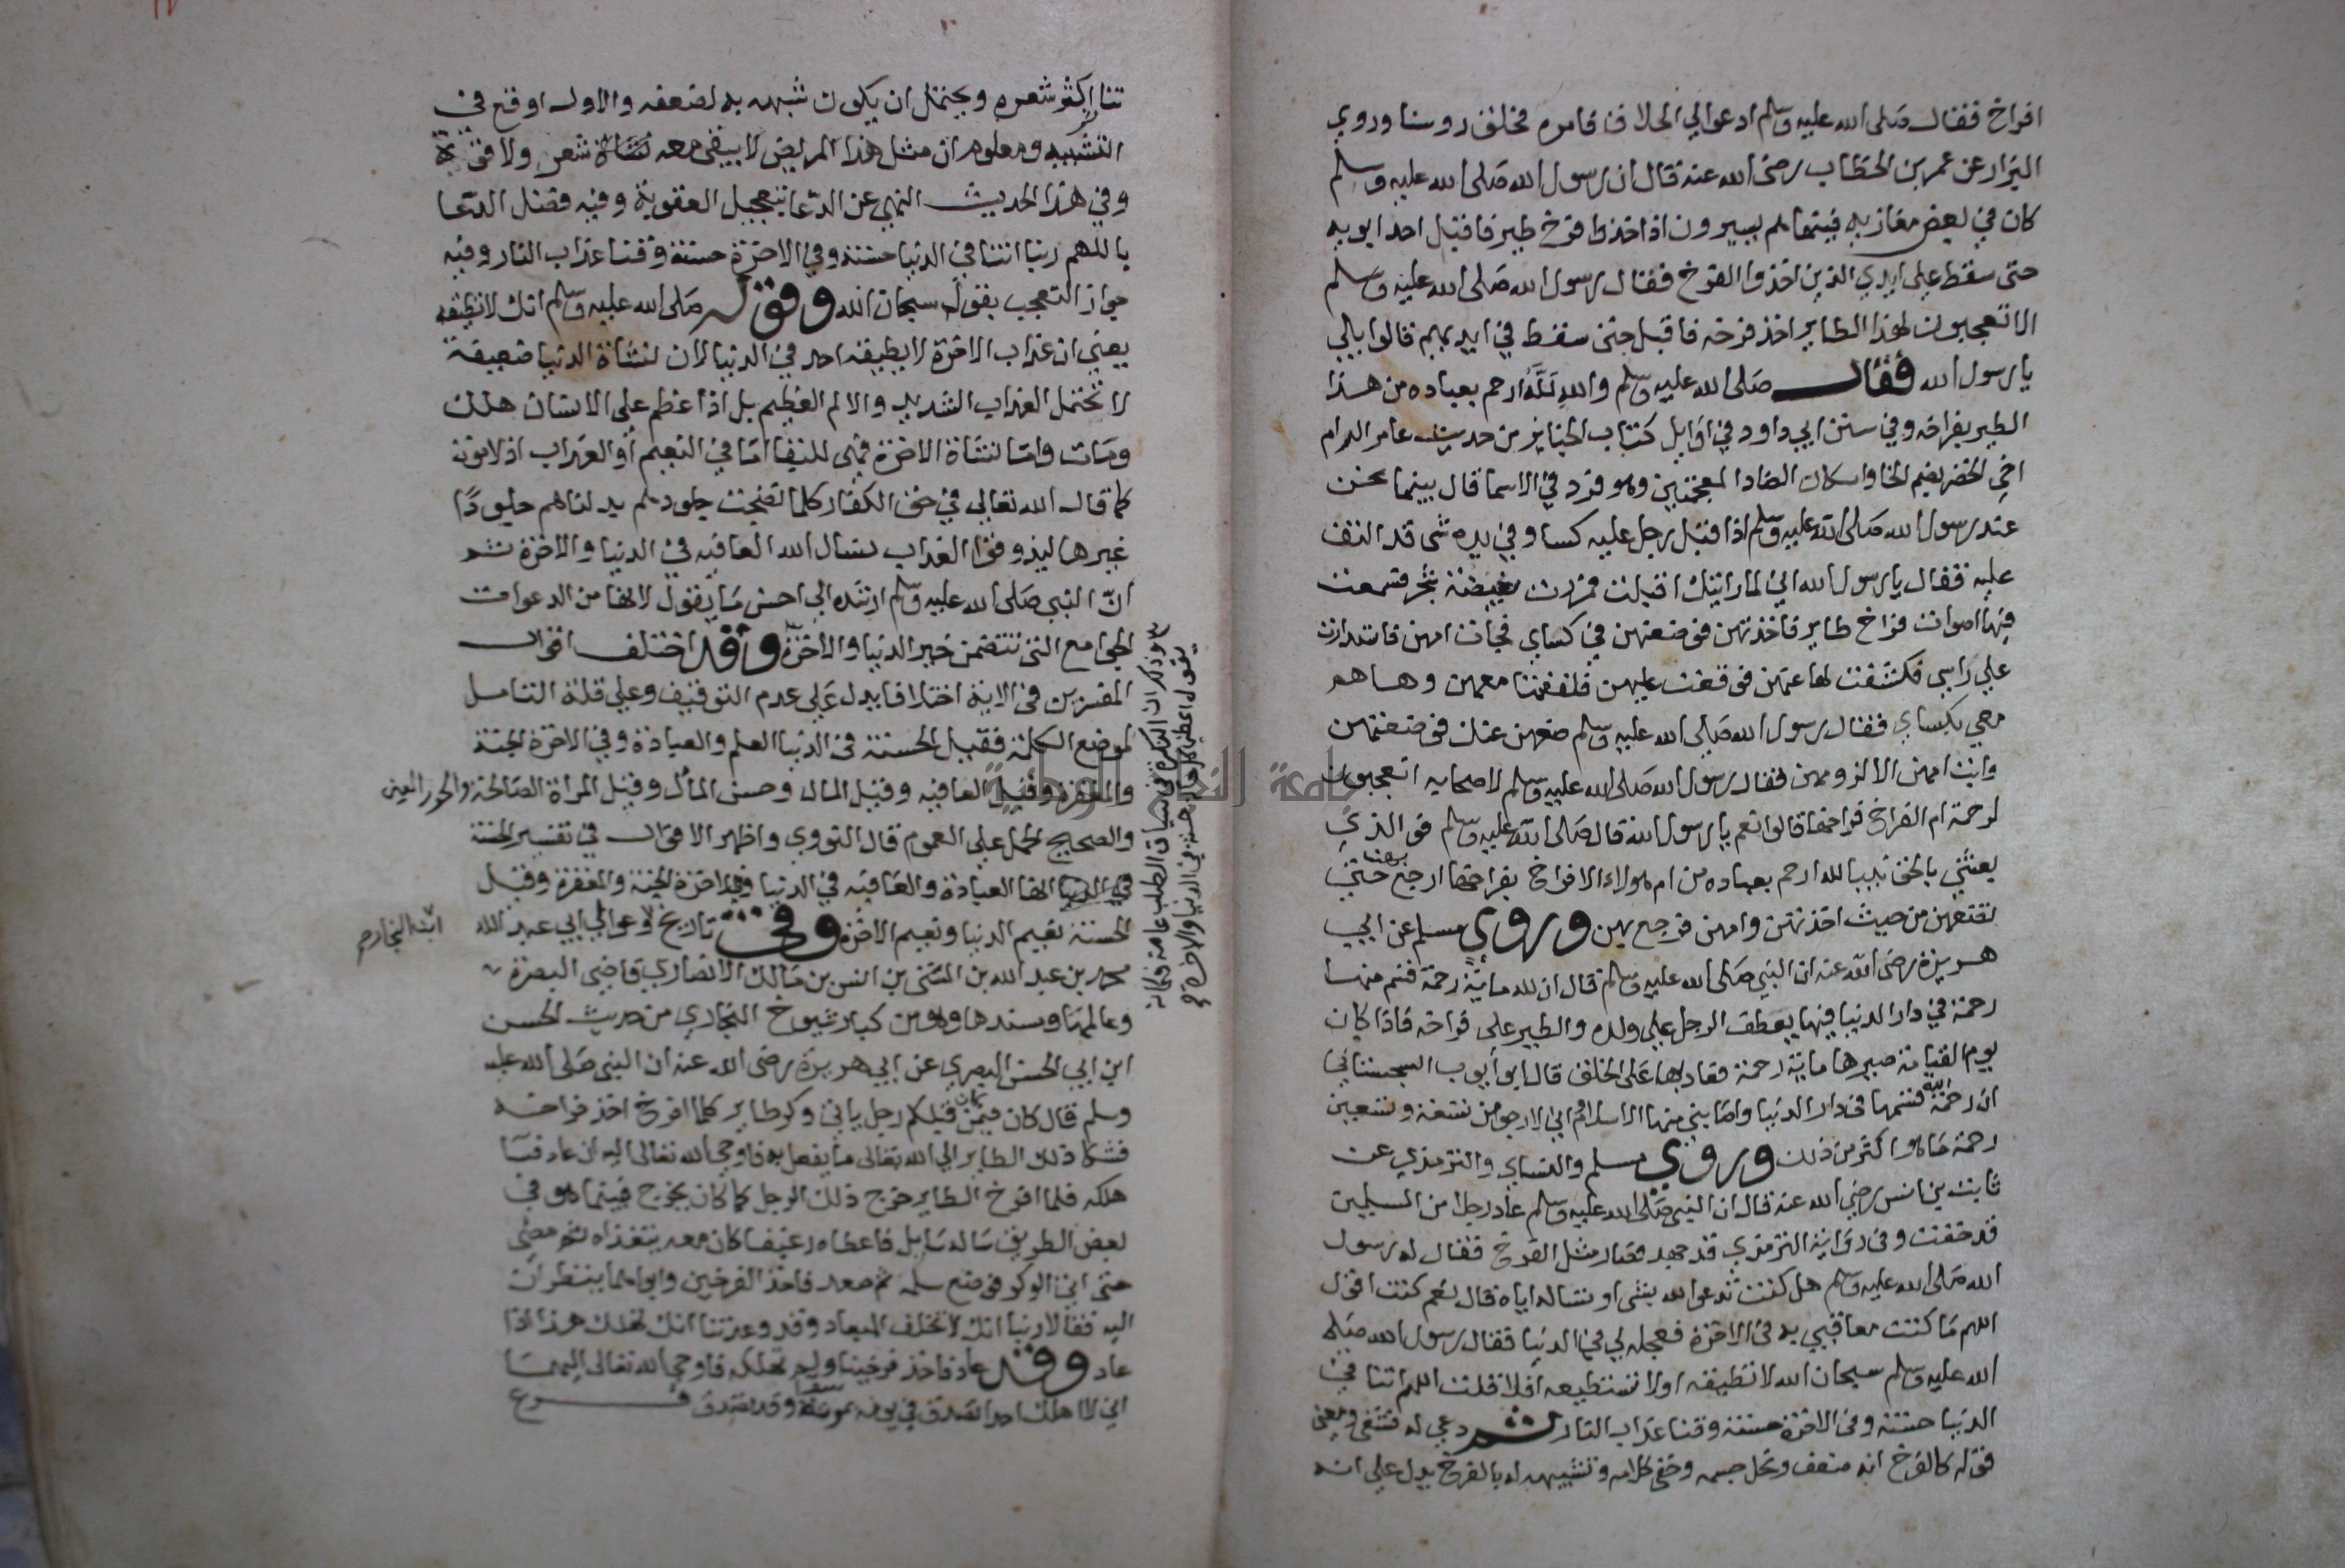 افراخ فقال صلى الله عليه وسلم ادعوا لي الحلاق فامره فحلق روسنا وروي
البزار عن عمر بن الخطاب رضي الله عنه قال ان رسول الله صلى الله عليه وسلم
كان في بعض مغازيه فبينما هم يسيرون اذ اخذوا فرخ طير فاقبل احد ابويه
حتى سقط على ايدي الذين اخذوا الفرخ فقال رسول الله صلى الله عليه وسلم
الا تعجبون لهذا الطاير اخذ فرخه فاقبل حتى سقط في ايديهم قالوا بلى
يا رسول الله فقال صلى الله عليه وسلم والله لله ارحم بعباده من هذا
الطير بفراخه وفي سنن ابي داود في اوايل كتاب الجنايز من حديث عامر الرام
اخي الخضر بضم الخا واسكان الضاد المعجمتين وهو فرد في الاسما قال بينما نحن
عند رسول الله صلى الله عليه وسلم اذ اقبل رجل عليه كسا وفي يده شي قد التف
عليه فقال يا رسول الله اني لما رايتك اقبلت فمررت بغيضة شجر فسمعت
فيها اصوات فراخ طاير فاخذتهن فوضعتهن في كساي فجات امهن فاستدارت
على راسي فكشفت لها عنهن فوقعت عليهن فلففتها معهن وها هم
معي بكساي فقال رسول الله صلى الله عليه وسلم ضعهن عنك فوضعتهن
وابت امهن الا لزومهن فقال رسول الله صلى الله عليه وسلم لاصحابه اتعجبون
لرحمة ام الفراخ فراخها قالوا نعم يا رسول الله قال صلى الله عليه وسلم فوالذي
بعثني بالحق نبيا لله ارحم بعباده من ام هولاء الافراخ بفراخها ارجع بهن حتى
تضعهن من حيث اخذتهن وامهن فرجع بهن وروي مسلم عن ابي
هريرة رضي الله عنه ان النبي صلى الله عليه وسلم قال ان لله ماية رحمة قسم منها
رحمة في دار الدنيا فبها يعطف الرجل على ولده والطير على فراخه فاذا كان
يوم القيامة صيرها ماية رحمة فعاد بها على الخلق قال ابو ايوب السجستاني
ان رحمة الله قسمها في دار الدنيا واصابني منها الاسلام اني لارجو من تسعة وتسعين
رحمة ما هو اكثر من ذلك وروي مسلم والنساي والترمذي عن
ثابت بن انس رضي الله عنه قال ان النبي صلى الله عليه وسلم عاد رجلا من المسلمين
قد خفت وفي رواية الترمذي قد جهد فصار مثل الفرخ فقال له رسول
الله صلى الله عليه وسلم هل كنت تدعو الله بشي او تساله اياه قال نعم كنت اقول
اللهم ما كنت معاقبي به في الاخرة فعجله لي في الدنيا فقال رسول الله صلى
الله عليه وسلم سبحان الله لا تطيقه او لا تستطيعه افلا قلت اللهم اتنا في
الدنيا حسنة وفي الاخرة حسنة وقنا عذاب النار ثم دعي له فشفي ومعنى
قوله كالفرخ انه ضعف ونحل جسمه وخفي كلامه وتشبيهه له بالفرخ يدل على انه
تناثر اكثر شعره ويحتمل ان يكون شبهه به لضعفه والاول اوقع في
التشبيه ومعلوم ان مثل هذا المرض لا يبقى معه شعر ولا قوة
وفي هذا الحديث النهي عن الدعا بتعجيل العقوبة وفيه فضل الدعا
باللهم ربنا اتنا في الدنيا حسنة وفي الاخرة حسنة وقنا عذاب النار وفيه
جواز التعجب بقول سبحان الله وقوله صلى الله عليه وسلم انك لا تطيقه
يعني ان عذاب الاخرة لا يطيقه احد في الدنيا لان نشاة الدنيا ضعيفة
لا تحتمل العذاب الشديد والالم العظيم بل اذا عظم على الانسان هلك
ومات واما نشاة الاخرة فهي للبقا اما في النعيم او العذاب اذ لا موت
كما قال الله تعالى في حق الكفار كلما نضجت جلودهم بدلناهم جلودًا
غيرها ليذوقوا العذاب نسال الله العافيه في الدنيا والاخرة ثم
ان النبي صلى الله عليه وسلم ارشده الى احسن ما يقول لانها من الدعوات
الجوامع التي تتضمن خير الدنيا والاخرة وقد اختلف اقوال
المفسرين في الاية اختلافا يدل على عدم التوقيف وعلى قلة التامل
لموضع الكلمة فقيل الحسنة في الدنيا العلم والعبادة وفي الاخرة الجنة
والمغفرة وقيل العافيه وقيل المال وحسن المآل وقيل المراة الصالحة والحور العين
والصحيح الحمل على العموم قال النووي واظهر الاقوال في تفسير الحسنة
في الدنيا انها العبادة والعافيه في الدنيا وفي الاخرة الجنة والمغفرة وقيل
الحسنة نعيم الدنيا ونعيم الاخرة وفي تاريخ ابن النجار وعوالي ابي عبد الله
محمد بن عبد الله بن المثنى بن انس بن مالك الانصاري قاضي البصرة
وعالمها ومسندها وهو من كبار شيوخ البخاري من حديث الحسن
ابن ابي الحسن البصري عن ابي هريرة رضي الله عنه ان النبي صلى الله عليه
وسلم قال كان فيمن كان قبلكم رجل ياتي وكر طاير كلما افرخ اخذ فراخه
فشكا ذلك الطاير الى الله تعالى ما يفعل به فاوحي الله تعالى اليه ان عاد فسا
هلكه فلما افرخ الطاير خرج ذلك الرجل كما كان يخرج فبينما هو في
بعض الطريق ساله سايل فاعطاه رغيفا كان معه يتغداه ثم مضى
حتى اتى الوكر فوضع سلمه ثم صعد فاخذ الفرخين وابواهما ينظران
اليه فقالا ربنا انك لا تخلف الميعاد وقد وعدتنا انك تهلك هذا اذا
عاد وقد عاد فاخذ فرخينا ولم تهلكه فاوحي الله تعالى اليهما
اني لا اهلك احدا تصدق في يومه بموتة سوء وقد تصدق فرع
جامعة النجاح الوطنية